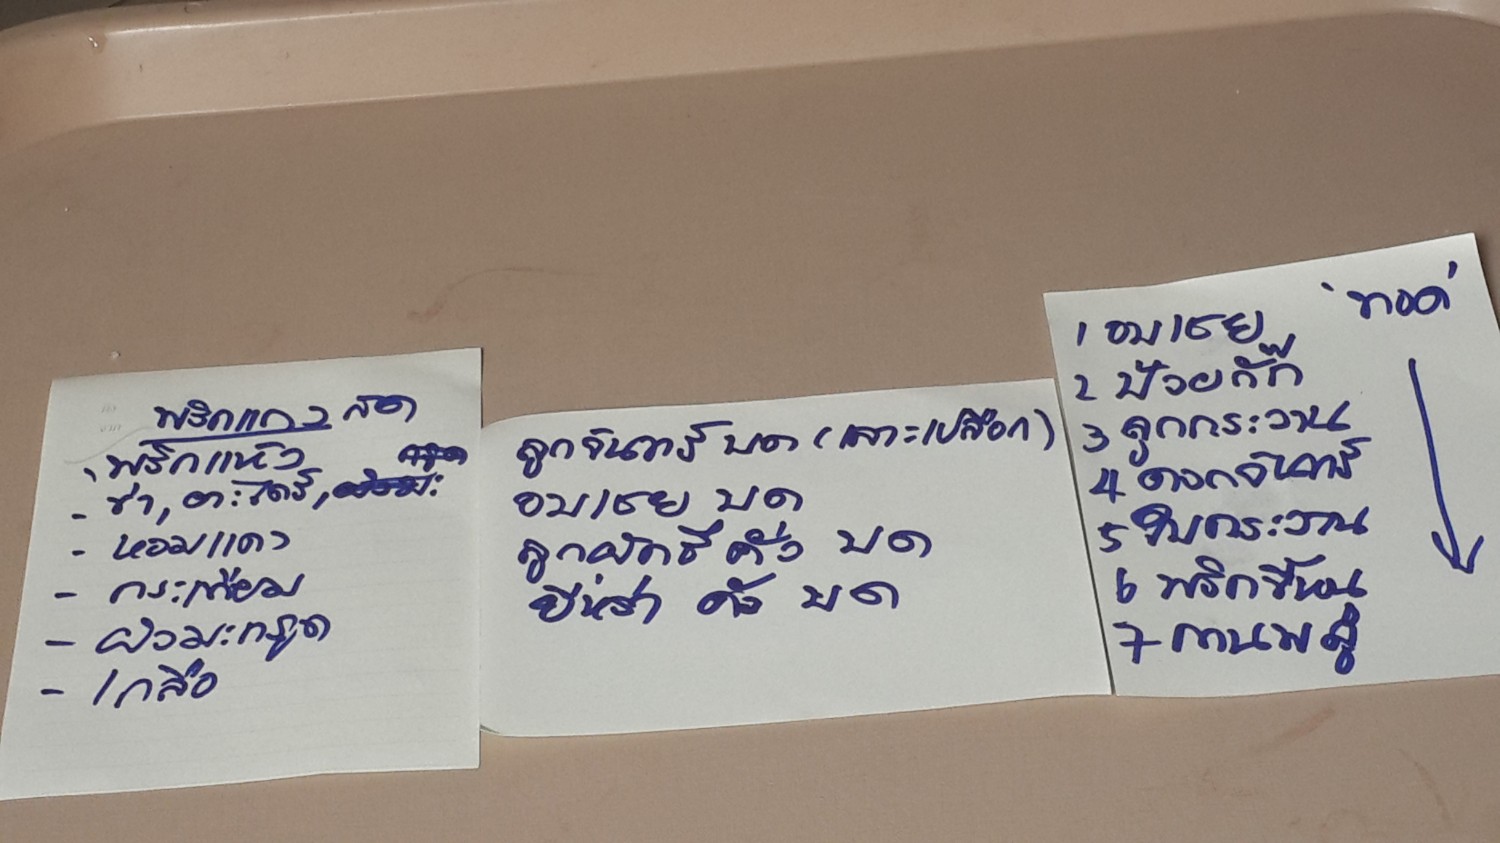 พริกแกง สด
- พริกแห้ง
- ข่า, ตะไคร้,
- หอมแดง
- กระเทียม
- ผิวมะกรูด
- เกลือ
ลูกจันทร์ บด (เคาะเปลือก)
อบเชย บด
ลูกผักชี คั่ว บด
ยี่หร่า คั่ว บด
'ทอด'
1 อบเชย
2 ป๋วยกั๊ก
3 ลูกกระวาน
4 ดอกจันทร์
5 ใบกระวาน
6 พริกชี
7 กานพลู